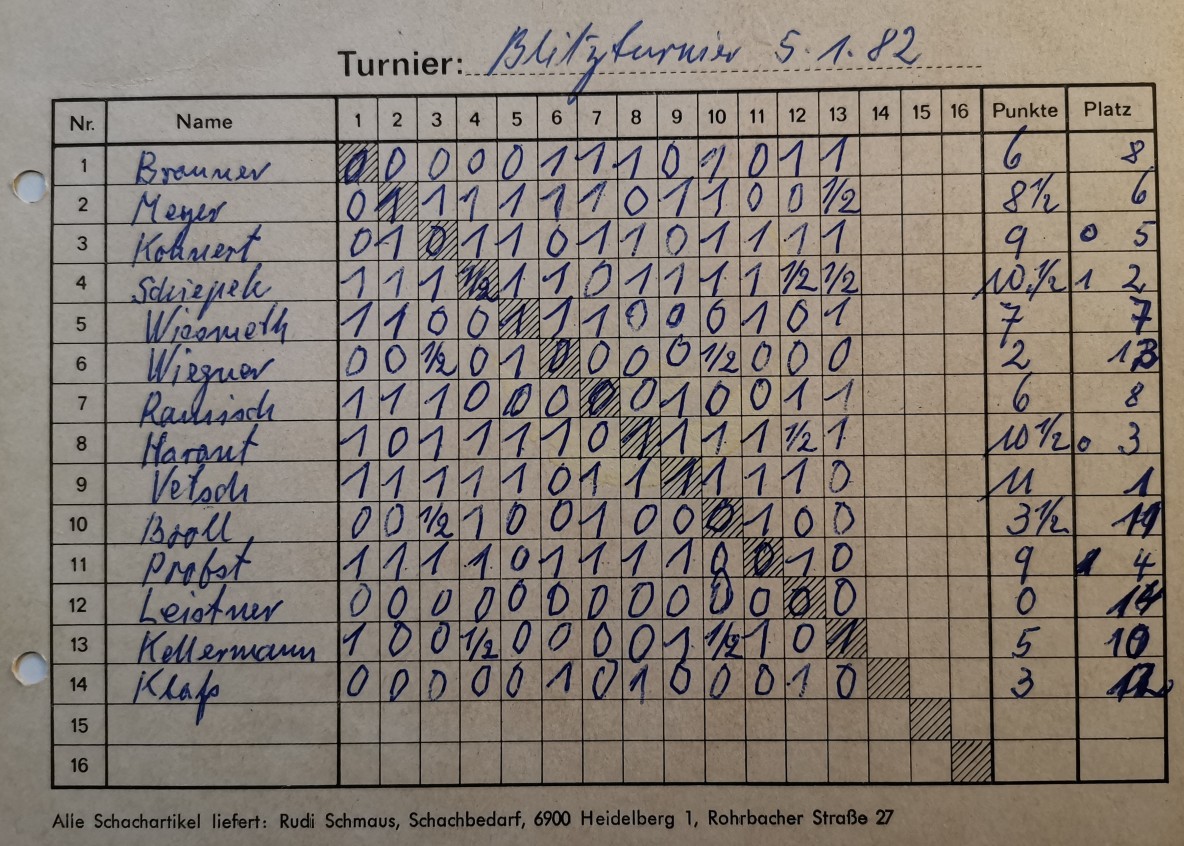 Turnier: Blitzturnier 5.1.82
Nr. Name 1 2 3 4 5 6 7 8 9 10 11 12 13 14 15 16 Punkte Platz
1 Brauner 0 0 0 0 0 1 1 1 0 1 0 1 1 6 8
2 Meyer 0 1 1 1 1 1 1 0 1 1 0 0 1/2 8 1/2 6
3 Kohnert 0 1 0 1 1 0 1 1 0 1 1 1 1 9 0 5
4 Schiepek 1 1 1 1/2 1 1 0 1 1 1 1 1/2 1/2 10 1/2 1 2
5 Wiesmeth 1 1 0 0 1 1 1 0 0 0 1 0 1 7 7
6 Wiegner 0 0 1/2 0 1 0 0 0 0 1/2 0 0 0 2 13
7 Ramisch 1 1 1 0 0 0 0 0 1 0 0 1 1 6 8
8 Haraut 1 0 1 1 1 1 0 1 1 1 1 1/2 1 10 1/2 0 3
9 Vetsch 1 1 1 1 1 0 1 1 1 1 1 1 0 11 1
10 Broll 0 0 1/2 1 0 0 1 0 0 0 1 0 0 3 1/2 11
11 Probst 1 1 1 1 0 1 1 1 1 0 0 1 0 9 1 4
12 Leistner 0 0 0 0 0 0 0 0 0 0 0 0 0 0 14
13 Kellermann 1 0 0 1/2 0 0 0 0 1 1/2 1 0 1 5 10
14 Klaß 0 0 0 0 0 1 0 1 0 0 0 1 0 3 12
15
16
Alle Schachartikel liefert: Rudi Schmaus, Schachbedarf, 6900 Heidelberg 1, Rohrbacher Straße 27